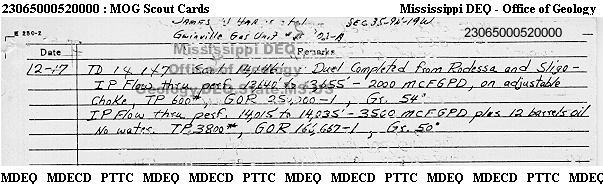 23065000520000 : MOG Scout Cards Mississippi DEQ - Office of Geology
James SEC 35-9N-19W
E 250-2 Gwinville Gas Unit 23065000520000
Mississippi DEQ
Date Remarks
12-17 TD 14,147 Dual Completed from Rodessa and Sligo-
Office of Geology
IP Flow thru perf. 13640' to 13655' - 2000 MCFGPD, on adjustable
choke, TP 600#, GOR 25,000-1, Gr. 54°
IP Flow thru perf. 14,015 to 14,035' - 3560 MCFGPD plus 12 barrels oil
No water. TP 3800#, GOR 166,667-1, Gr. 50°
MDEQ MDECD PTTC MDEQ MDECD PTTC MDEQ MDECD PTTC MDEQ MDECD PTTC MDEQ